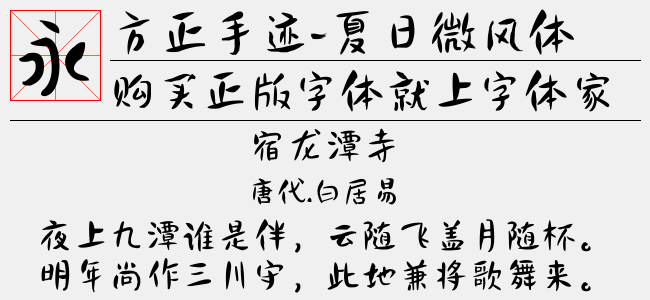 永
方正手迹-夏日微风体
购买正版字体就上字体家
宿龙潭寺
唐代.白居易
夜上九潭谁是伴，云随飞盖月随杯。
明年尚作三川守，此地兼将歌舞来。